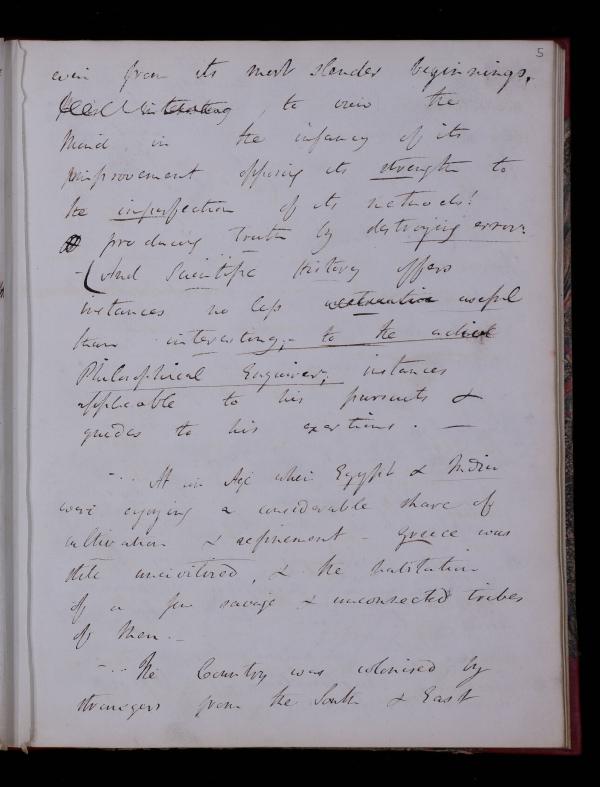 5
even from its most slender beginnings.
to view the
Mind in the infancy of its
improvement opposing its strength to
the imperfection of its methods!
producing truth by destroying error.
- (And Scientific History offers
instances no less useful
than interesting, to the active
Philosophical Enquirer; instances
applicable to his pursuits &
guides to his exertions. —
At an Age when Egypt & India
were enjoying a considerable share of
cultivation & refinement - Greece was
still uncivilized, & the habitation
of a few savage & unconnected tribes
of Men. -
The Country was colonised by
strangers from the South & East